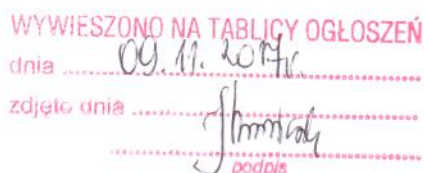 WYWIESZONO NA TABLICY OGŁOSZEŃ
dnia ........ 09.11.2017r. ........
zdjęto dnia ........
podpis